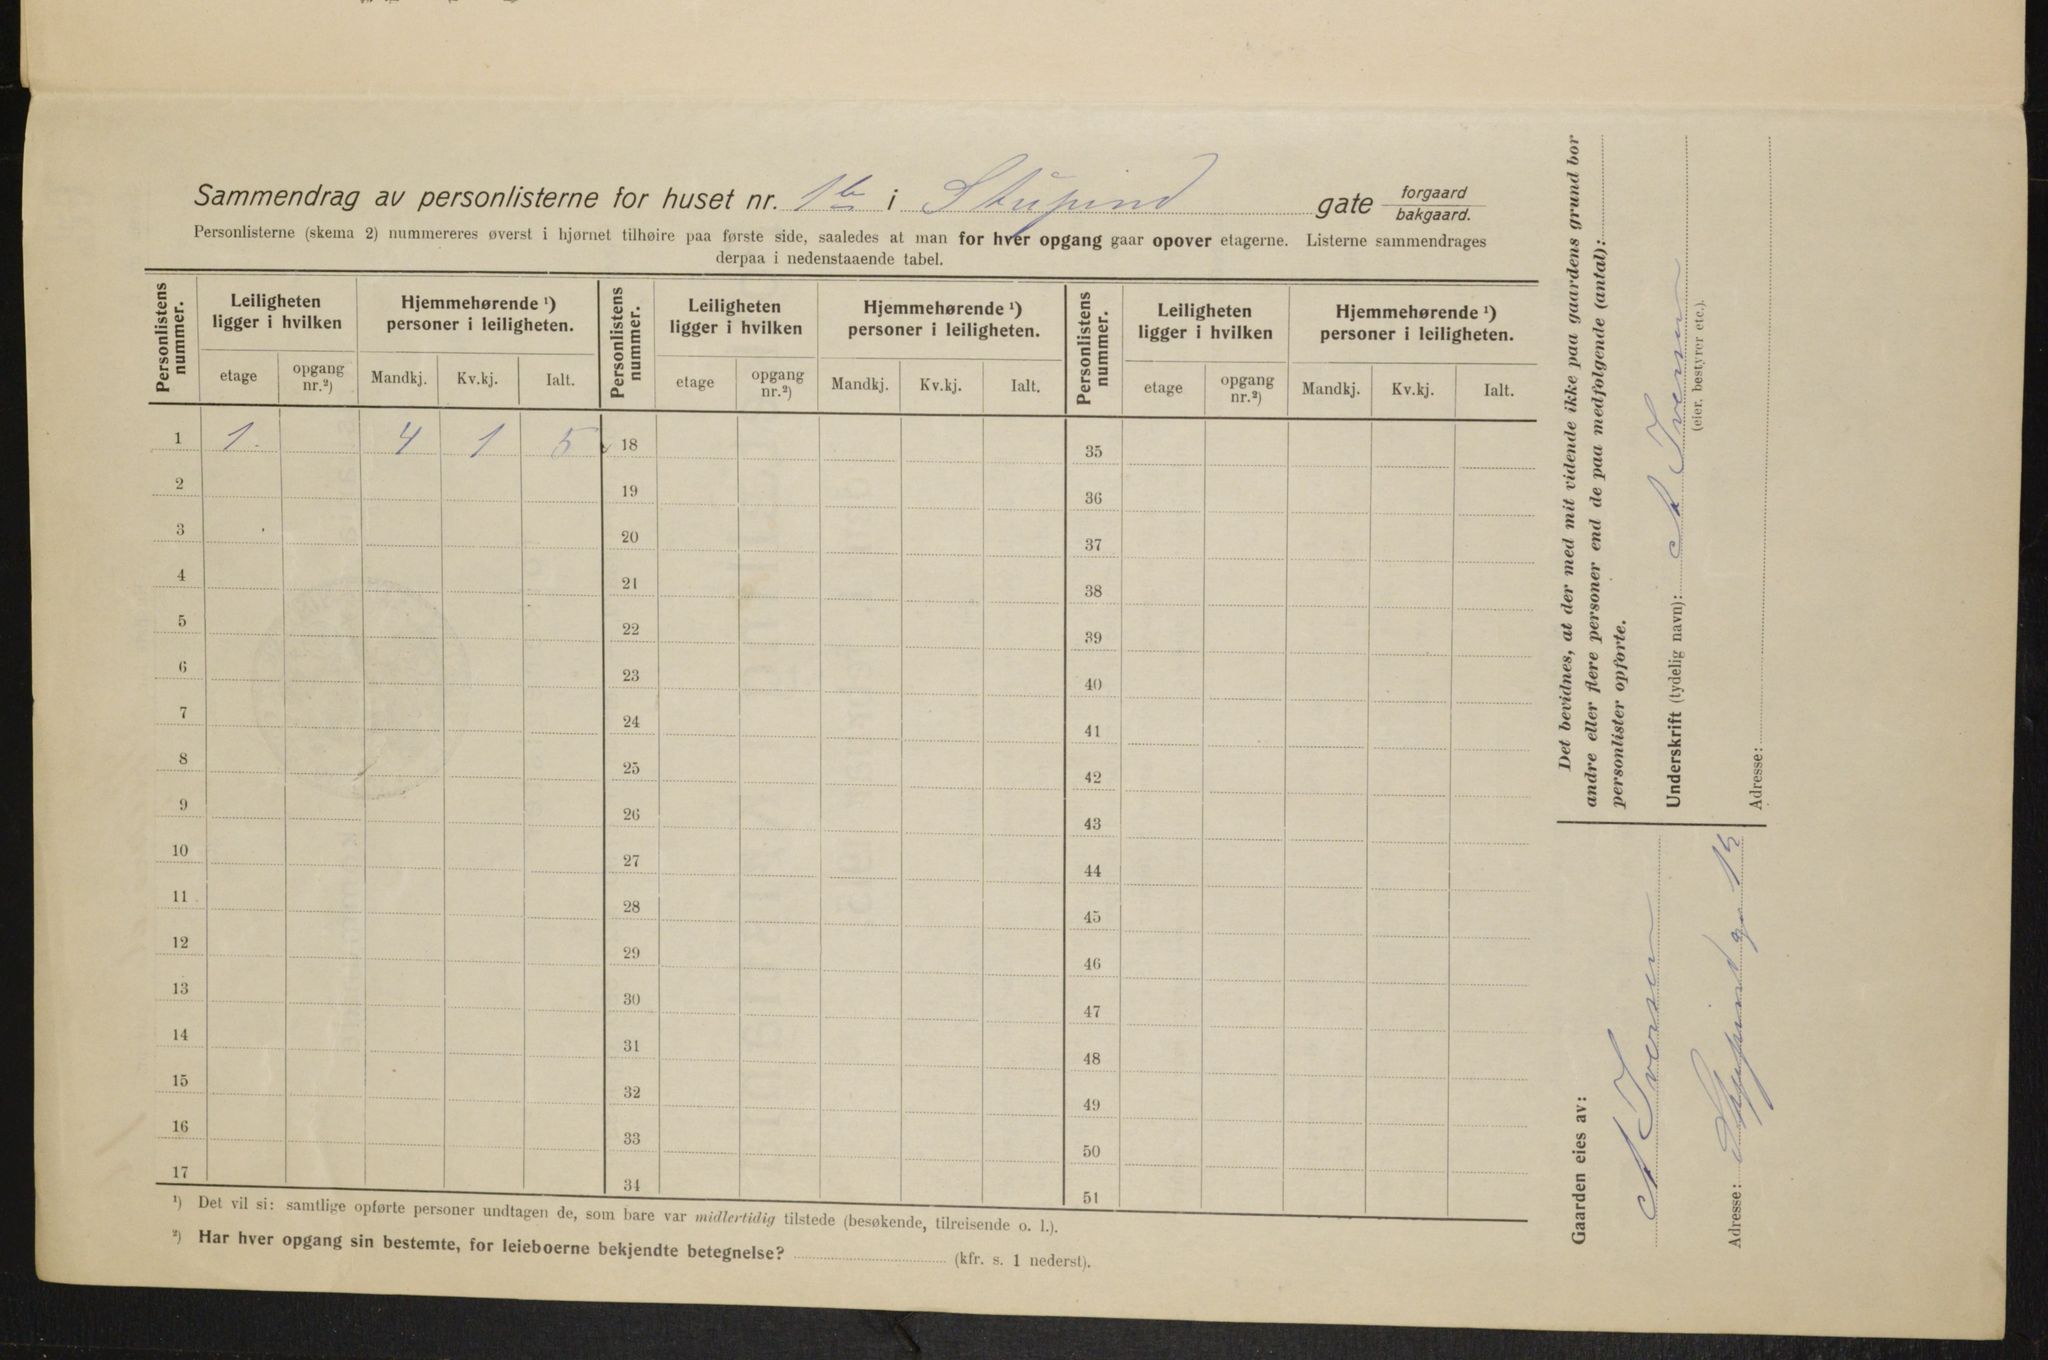 Sammendrag av personlisterne for huset nr. 1b i Stupind gate forgaard bakgaard.
Personlisterne (skema 2) nummereres øverst i hjørnet tilhøire paa første side, saaledes at man for hver opgang gaar opover etagerne. Listerne sammendrages
derpaa i nedenstaaende tabel.
Personlistens nummer. Leiligheten ligger i hvilken Hjemmehørende ¹) personer i leiligheten. Personlistens nummer. Leiligheten ligger i hvilken Hjemmehørende ¹) personer i leiligheten. Personlistens nummer. Leiligheten ligger i hvilken Hjemmehørende ¹) personer i leiligheten.
etage opgang nr.²) Mandkj. Kv.kj. Ialt. etage opgang nr.²) Mandkj. Kv.kj. Ialt. etage opgang nr.²) Mandkj. Kv.kj. Ialt.
1 1. 4 1 5 18 35
2 19 36
3 20 37
4 21 38
5 22 39
6 23 40
7 24 41
8 25 42
9 26 43
10 27 44
11 28 45
12 29 46
13 30 47
14 31 48
15 32 49
16 33 50
17 34 51
¹) Det vil si: samtlige opførte personer undtagen de, som bare var midlertidig tilstede (besøkende, tilreisende o. l.).
²) Har hver opgang sin bestemte, for leieboerne bekjendte betegnelse? (kfr. s. 1 nederst).
Det bevidnes, at der med mit vidende ikke paa gaardens grund bor
andre eller flere personer end de paa medfølgende (antal):
personlister opførte.
Underskrift (tydelig navn): A Iversen
(eier, bestyrer etc.).
Adresse:
Gaarden eies av:
A Iversen
Adresse: Stupind gr 1b